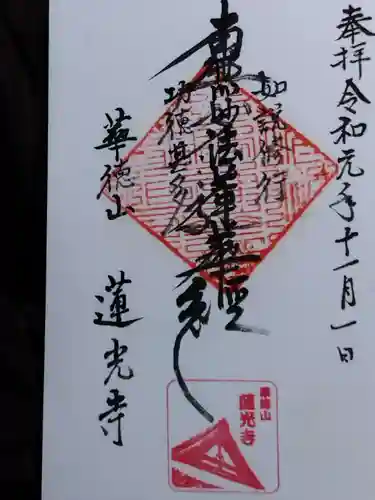 奉拝 令和元年十一月一日
如説修行
南無妙法蓮華経
功徳甚多
華徳山
蓮光寺
華徳山
蓮光寺